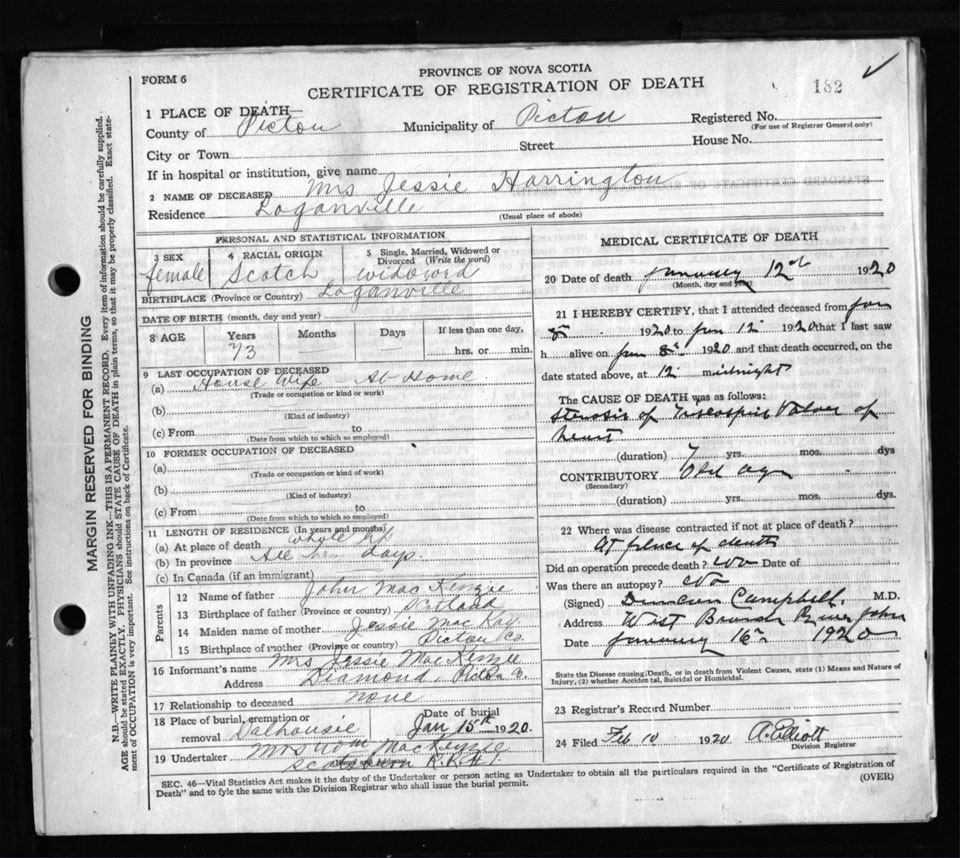 PROVINCE OF NOVA SCOTIA
FORM 6
CERTIFICATE OF REGISTRATION OF DEATH
182
1 PLACE OF DEATH—
County of Pictou Municipality of Pictou Registered No.
(For use of Registrar General only)
City or Town Street House No.
If in hospital or institution, give name
2 NAME OF DECEASED Mrs Jessie Harrington
Residence Loganville
(Usual place of abode)
PERSONAL AND STATISTICAL INFORMATION
3 SEX 4 RACIAL ORIGIN 5 Single, Married, Widowed or Divorced (Write the word)
female Scotch widowed
BIRTHPLACE (Province or Country) Loganville
DATE OF BIRTH (month, day and year)
8 AGE Years Months Days If less than one day,
73 hrs. or min.
9 LAST OCCUPATION OF DECEASED
(a) House Wife - At Home
(Trade or occupation or kind or work)
(b)
(Kind of industry)
(c) From to
(Date from which to which so employed)
10 FORMER OCCUPATION OF DECEASED
(a)
(Trade or occupation or kind of work)
(b)
(Kind of industry)
(c) From to
(Date from which to which so employed)
11 LENGTH OF RESIDENCE (In years and months)
(a) At place of death whole life
(b) In province All her days.
(c) In Canada (if an immigrant)
Parents
12 Name of father John MacKenzie
13 Birthplace of father (Province or country)
14 Maiden name of mother Jessie MacKay
15 Birthplace of mother (Province or country) Pictou Co.
16 Informant's name Mrs Jessie MacKenzie
Address Diamond, Pictou Co.
17 Relationship to deceased none
18 Place of burial, cremation or removal Dalhousie Date of burial Jan 15th 1920.
19 Undertaker Mrs MacKenzie
Scotsburn R.R.#1.
MEDICAL CERTIFICATE OF DEATH
20 Date of death January 12th 1920
(Month, day and year)
21 I HEREBY CERTIFY, that I attended deceased from Jan
8 1920 to Jan 12 1920 that I last saw
h alive on Jan 8th 1920 and that death occurred, on the
date stated above, at 12 midnight
The CAUSE OF DEATH was as follows:
Stenosis of Valve of
heart
(duration) 7 yrs. mos. dys
CONTRIBUTORY Old age
(Secondary)
(duration) yrs. mos. dys.
22 Where was disease contracted if not at place of death?
At place of death
Did an operation precede death? No Date of
Was there an autopsy? No
(Signed) Duncan Campbell, M.D.
Address West Branch River John
Date January 16th 1920
State the Disease causing Death, or in death from Violent Causes, state (1) Means and Nature of
Injury, (2) whether Accidental, Suicidal or Homicidal.
23 Registrar's Record Number
24 Filed Feb 10 1920 A. Elliott
Division Registrar
SEC. 46—Vital Statistics Act makes it the duty of the Undertaker or person acting as Undertaker to obtain all the particulars required in the "Certificate of Registration of
Death" and to fyle the same with the Division Registrar who shall issue the burial permit.
(OVER)
MARGIN RESERVED FOR BINDING
N.B.—WRITE PLAINLY WITH UNFADING INK—THIS IS A PERMANENT RECORD. Every item of information should be carefully supplied.
AGE should be stated EXACTLY. PHYSICIANS should STATE CAUSE OF DEATH in plain terms, so that it may be properly classified. Exact state-
ment of OCCUPATION is very important. See instructions on back of Certificate.